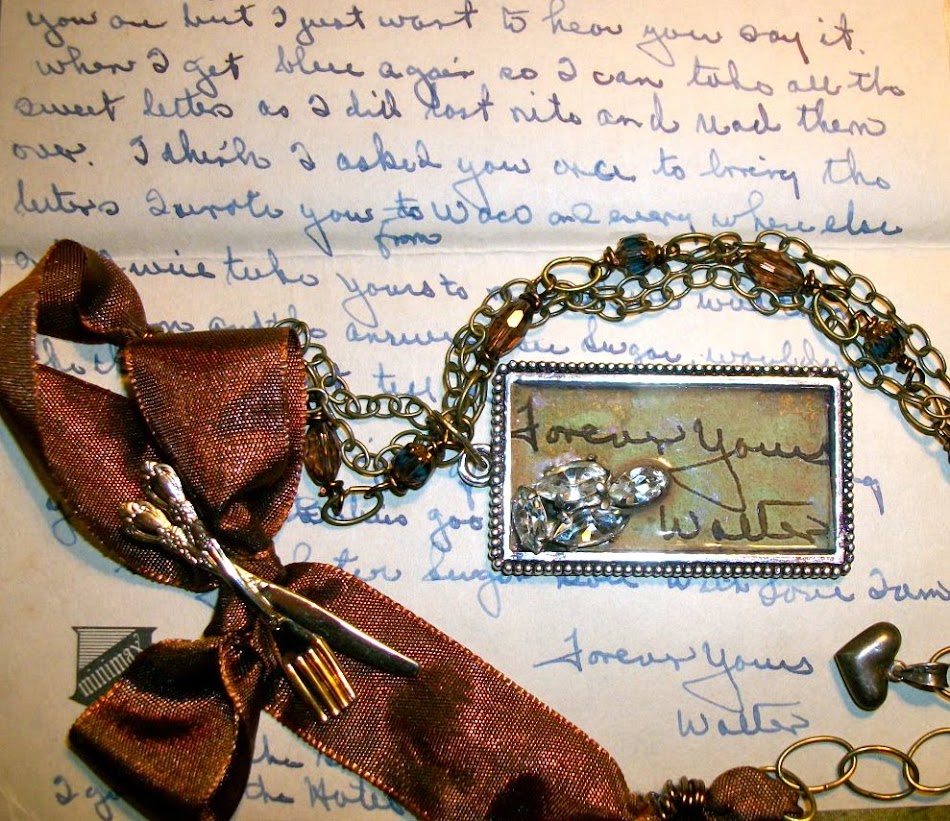 you are but I just want to hear you say it.
when I get blue again so I can take all the
sweet letters as I did last nite and read them
over. I think I asked you once to bring the
letters I wrote you to Waco and every where else
from
will take yours to
and the answer Sugar would
tell
Forever Yours
goo
Walter
Sugar with Love I am
minimax
Forever Yours
Walter
the
I the Hotel